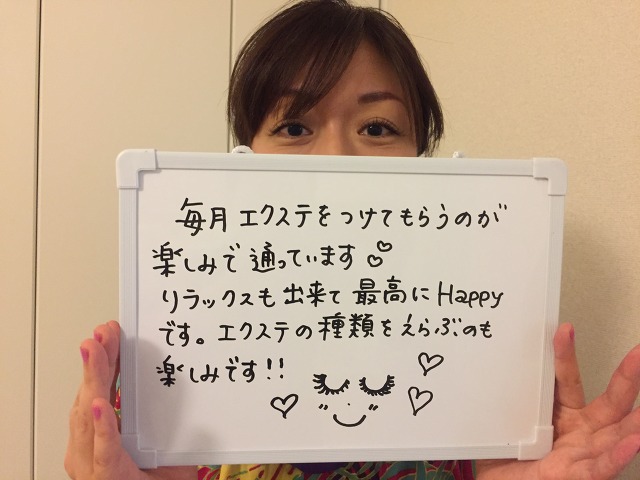 毎月エクステをつけてもらうのが
楽しみで通っています
リラックスも出来て最高にHappy
です。エクステの種類をえらぶのも
楽しみです!!